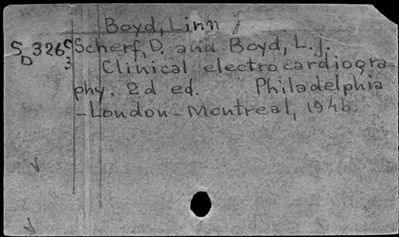 Boyd, Linn J
SD 326 C3 Scherf, D. and Boyd, L.J.
Clinical electrocardiogra
phy. 2d ed. Philadelphia
-London-Montreal, 1946.